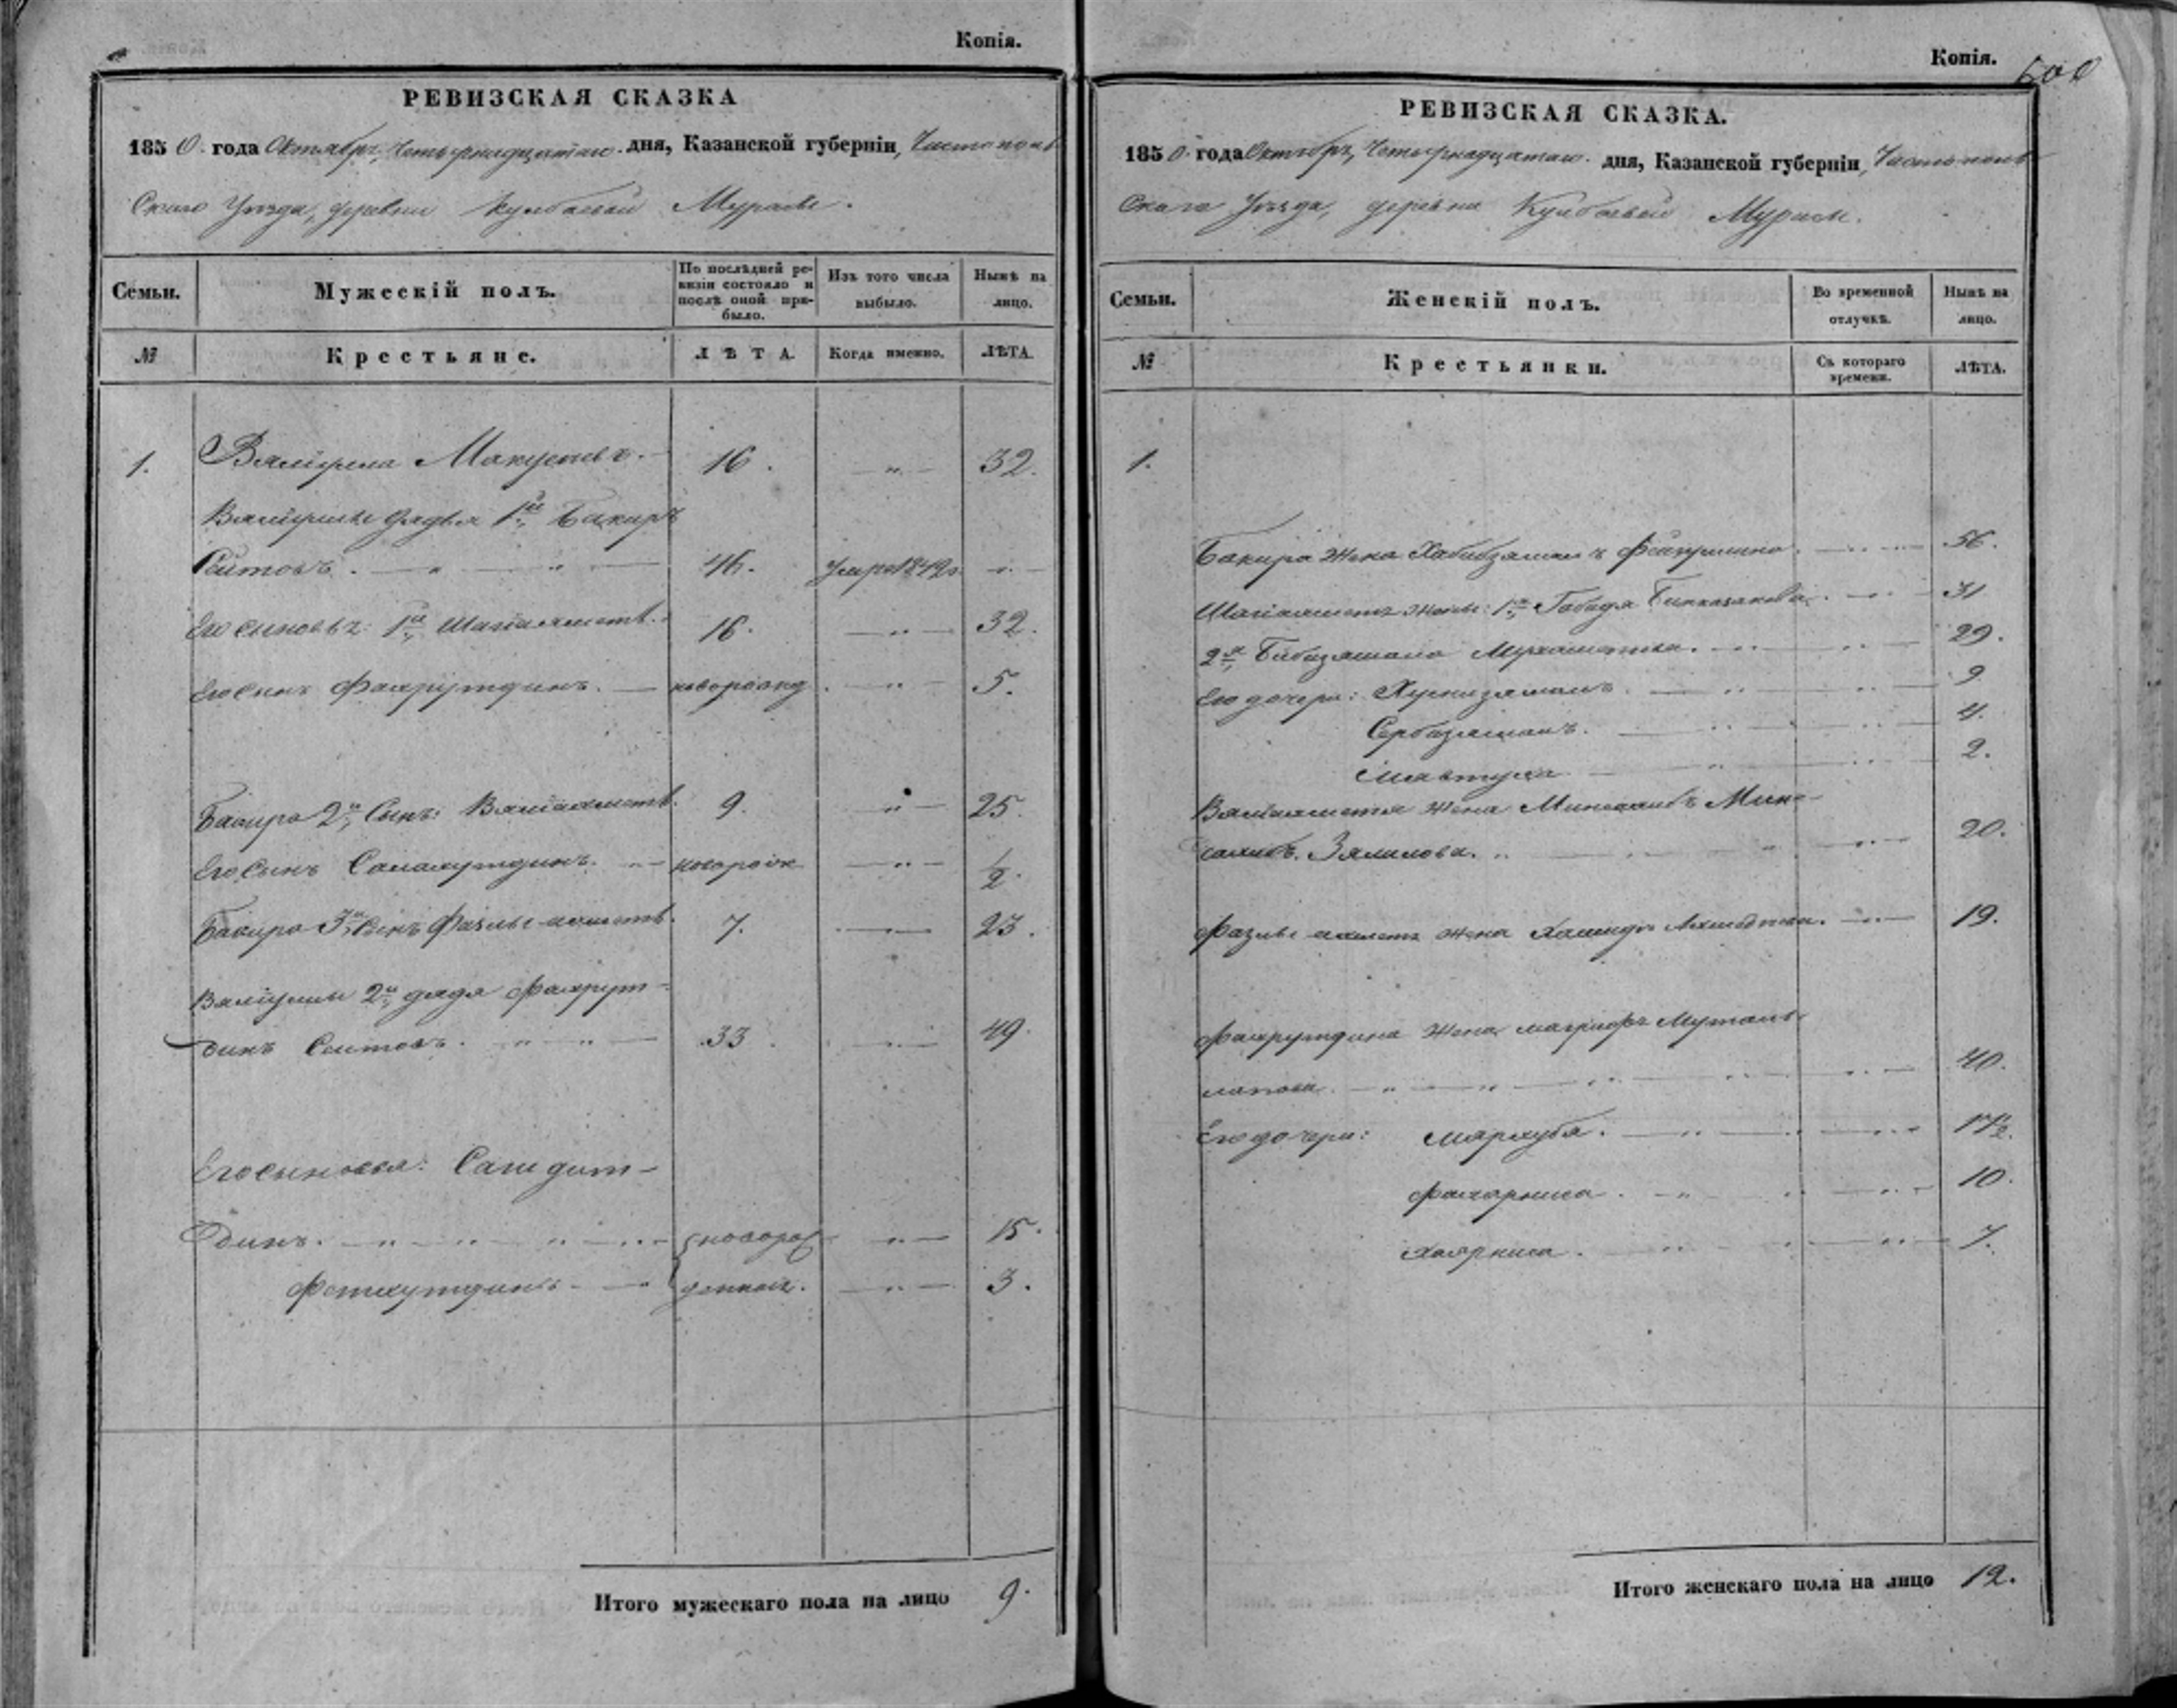 Копія.
РЕВИЗСКАЯ СКАЗКА
1850. года Октября, Четырнадцатаго. дня, Казанской губерніи, Чистополь
Скаго Уѣзда, деревни Кулбаевой Мурасы.
Семьи.
Мужескій полъ.
По послѣдней ре-
визіи состояло и
послѣ оной при-
было.
Изъ того числа
выбыло.
Нынѣ на
лицо.
№
Крестьяне.
ЛѢТА.
Когда именно.
ЛѢТА.
1. Валіулла 16. „ 32.
Валіуллы дядья 1й Бакиръ
Сеитовъ. 46. Умре 1842 г.
Его сыновья: 1й Шагіахметъ. 16. „ 32.
Его сынъ Фахрутдинъ. новорожд. „ 5.
Бакира 2й Сынъ: Валіахметъ. 9. „ 25.
Его Сынъ Салахутдинъ. новорож „ 1/2.
Бакира 3й Сынъ Фазлы-ахметъ. 7. 23.
Валіуллы 2й дядя Фахрут-
динъ Сеитовъ. 33. 49.
Его сыновья: Сагидит-
динъ. новорож „ 15.
Фетхутдинъ денной. „ 3.
Итого мужескаго пола на лицо 9.
Копія.
600
РЕВИЗСКАЯ СКАЗКА.
1850. года Октября, Четырнадцатаго. дня, Казанской губерніи, Чистополь
Скаго Уѣзда, деревни Кулбаевой Мурасы.
Семьи.
Женскій полъ.
Во временной
отлучкѣ.
Нынѣ на
лицо.
№
Крестьянки.
Съ котораго
времени.
ЛѢТА.
1.
Бакира жена Хабибзямалъ Фейзуллина. 56.
Шагіахмета жены: 1я Габида 31
2я Бибизямала 29.
Его дочери: Хуснизямалъ. 9
Сербизямалъ. 4.
2.
Валіахмета жена
Зялилова. 20.
Фазлы ахмета жена 19.
Фахрутдина жена Муталь-
лапова. 40.
Его дочери: Мархуба. 17½.
Фахарниса. 10.
Хаярниса. 7.
Итого женскаго пола на лицо 12.